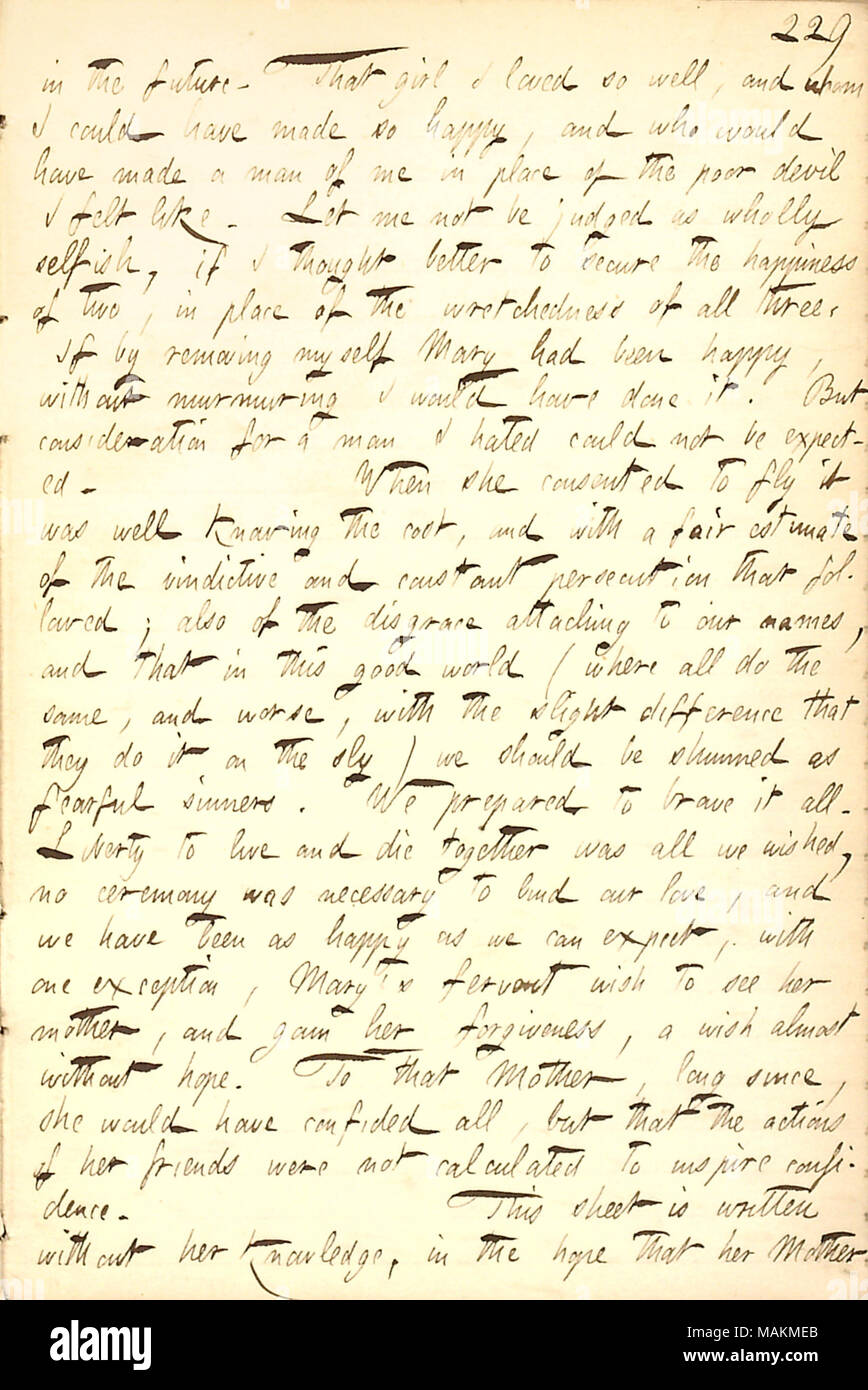 229
in the future. That girl I loved so well, and whom
I could have made so happy, and who would
have made a man of me in place of the poor devil
I felt like. Let me not be judged as wholly
selfish, if I thought better to secure the happiness
of two, in place of the wretchedness of all three.
If by removing myself Mary had been happy,
without murmuring I would have done it. But
consideration for a man I hated could not be expect-
ed. When she consented to fly it
was well knowing the cost, and with a fair estimate
of the vindictive and constant persecution that fol-
lowed; also of the disgrace attaching to our names,
and that in this good world (where all do the
same, and worse, with the slight difference that
they do it on the sly) we should be shunned as
fearful sinners. We prepared to brave it all.
Liberty to live and die together was all we wished,
no ceremony was necessary to bind our love, and
we have been as happy as we can expect, with
one exception, Mary's fervent wish to see her
mother, and gain her forgiveness, a wish almost
without hope. To that Mother, long since,
she would have confided all, but that the actions
of her friends were not calculated to inspire confi-
dence. This sheet is written
without her knowledge, in the hope that her Mother
alamy
Image ID: MAKMEB
www.alamy.com